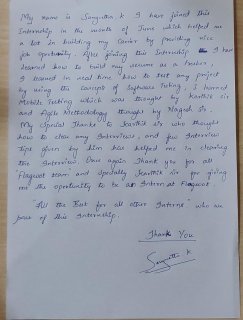 My name is Sangeetha K I have joined this
Internship in the month of June which helped me
a lot in building my Carier by providing nice
job oportunity. After joining this Internship I have
learned how to build my resume as a fresher
I learned in real time how to test any project
by using the Concepts of Software Testing, I learned
Mobile Testing which was thought by Karthik sir
and Agile Methodology thought by Nagesh sir.
My Special Thanks to Karthik sir who thought
how to clear any Interviews, and few Interview
tips given by him has helped me in clearing
the Interview. Once again Thank you for all
Flagwot team and specially Karthik sir for giving
me the oportunity to be an Intern at Flagwot.
"All the Best for all other Interns" who are
part of this Internship.
Thank You
Sangeetha K